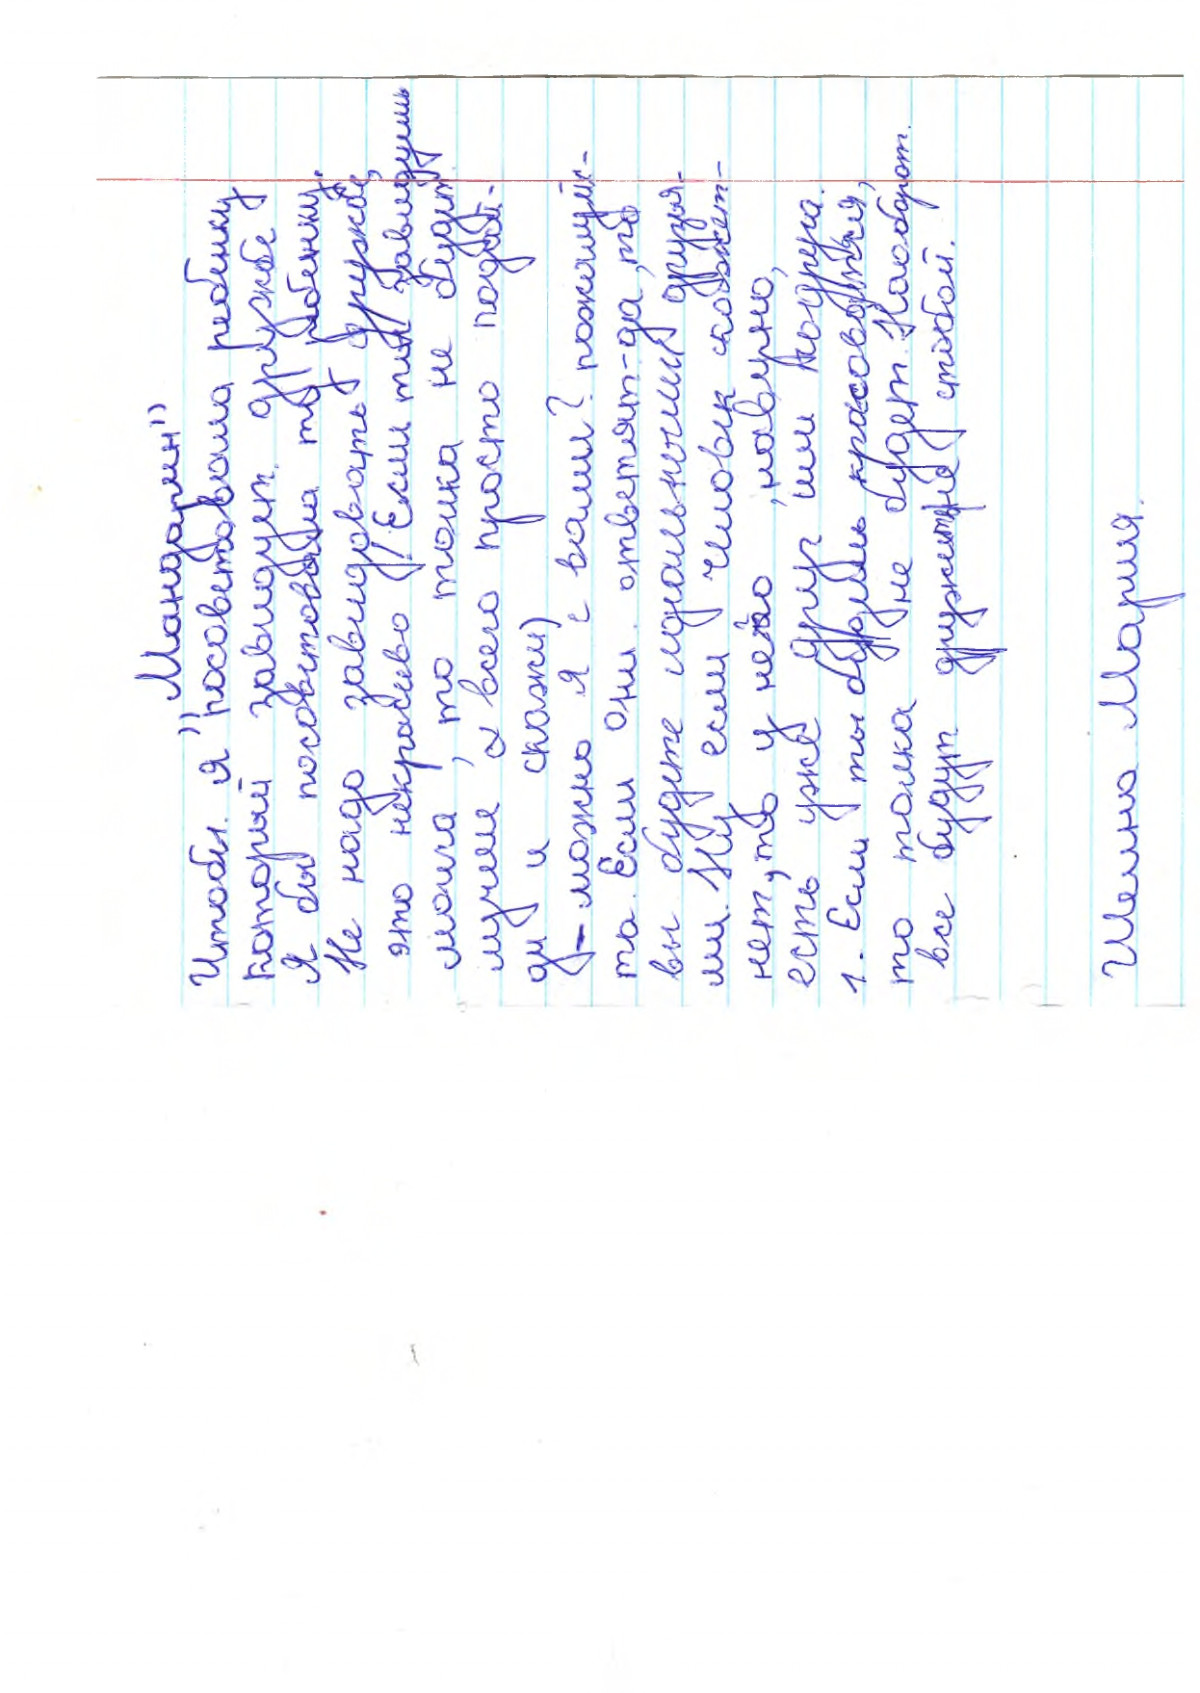 "Мандарин"
Чтобы я посоветовала ребёнку
который завидует дружбе
Я бы посоветовала та ребенку.
Не надо завидовать дружбе,
это некрасиво! Если ты завидуешь
молча, то толка не будит
лучше всего просто подой-
ди и скажи)
- можно я с вами? пожалуйс-
та. Если они ответят-да, то
вы будите идеальными друзья-
ми. Ну если человек скажет-
нет, то у него, наверно,
есть уже друг или подруга.
1. Если ты будешь красоваться,
то толка не будет. Наоборот
все будут дружить с тобой.
Шелина Мария.